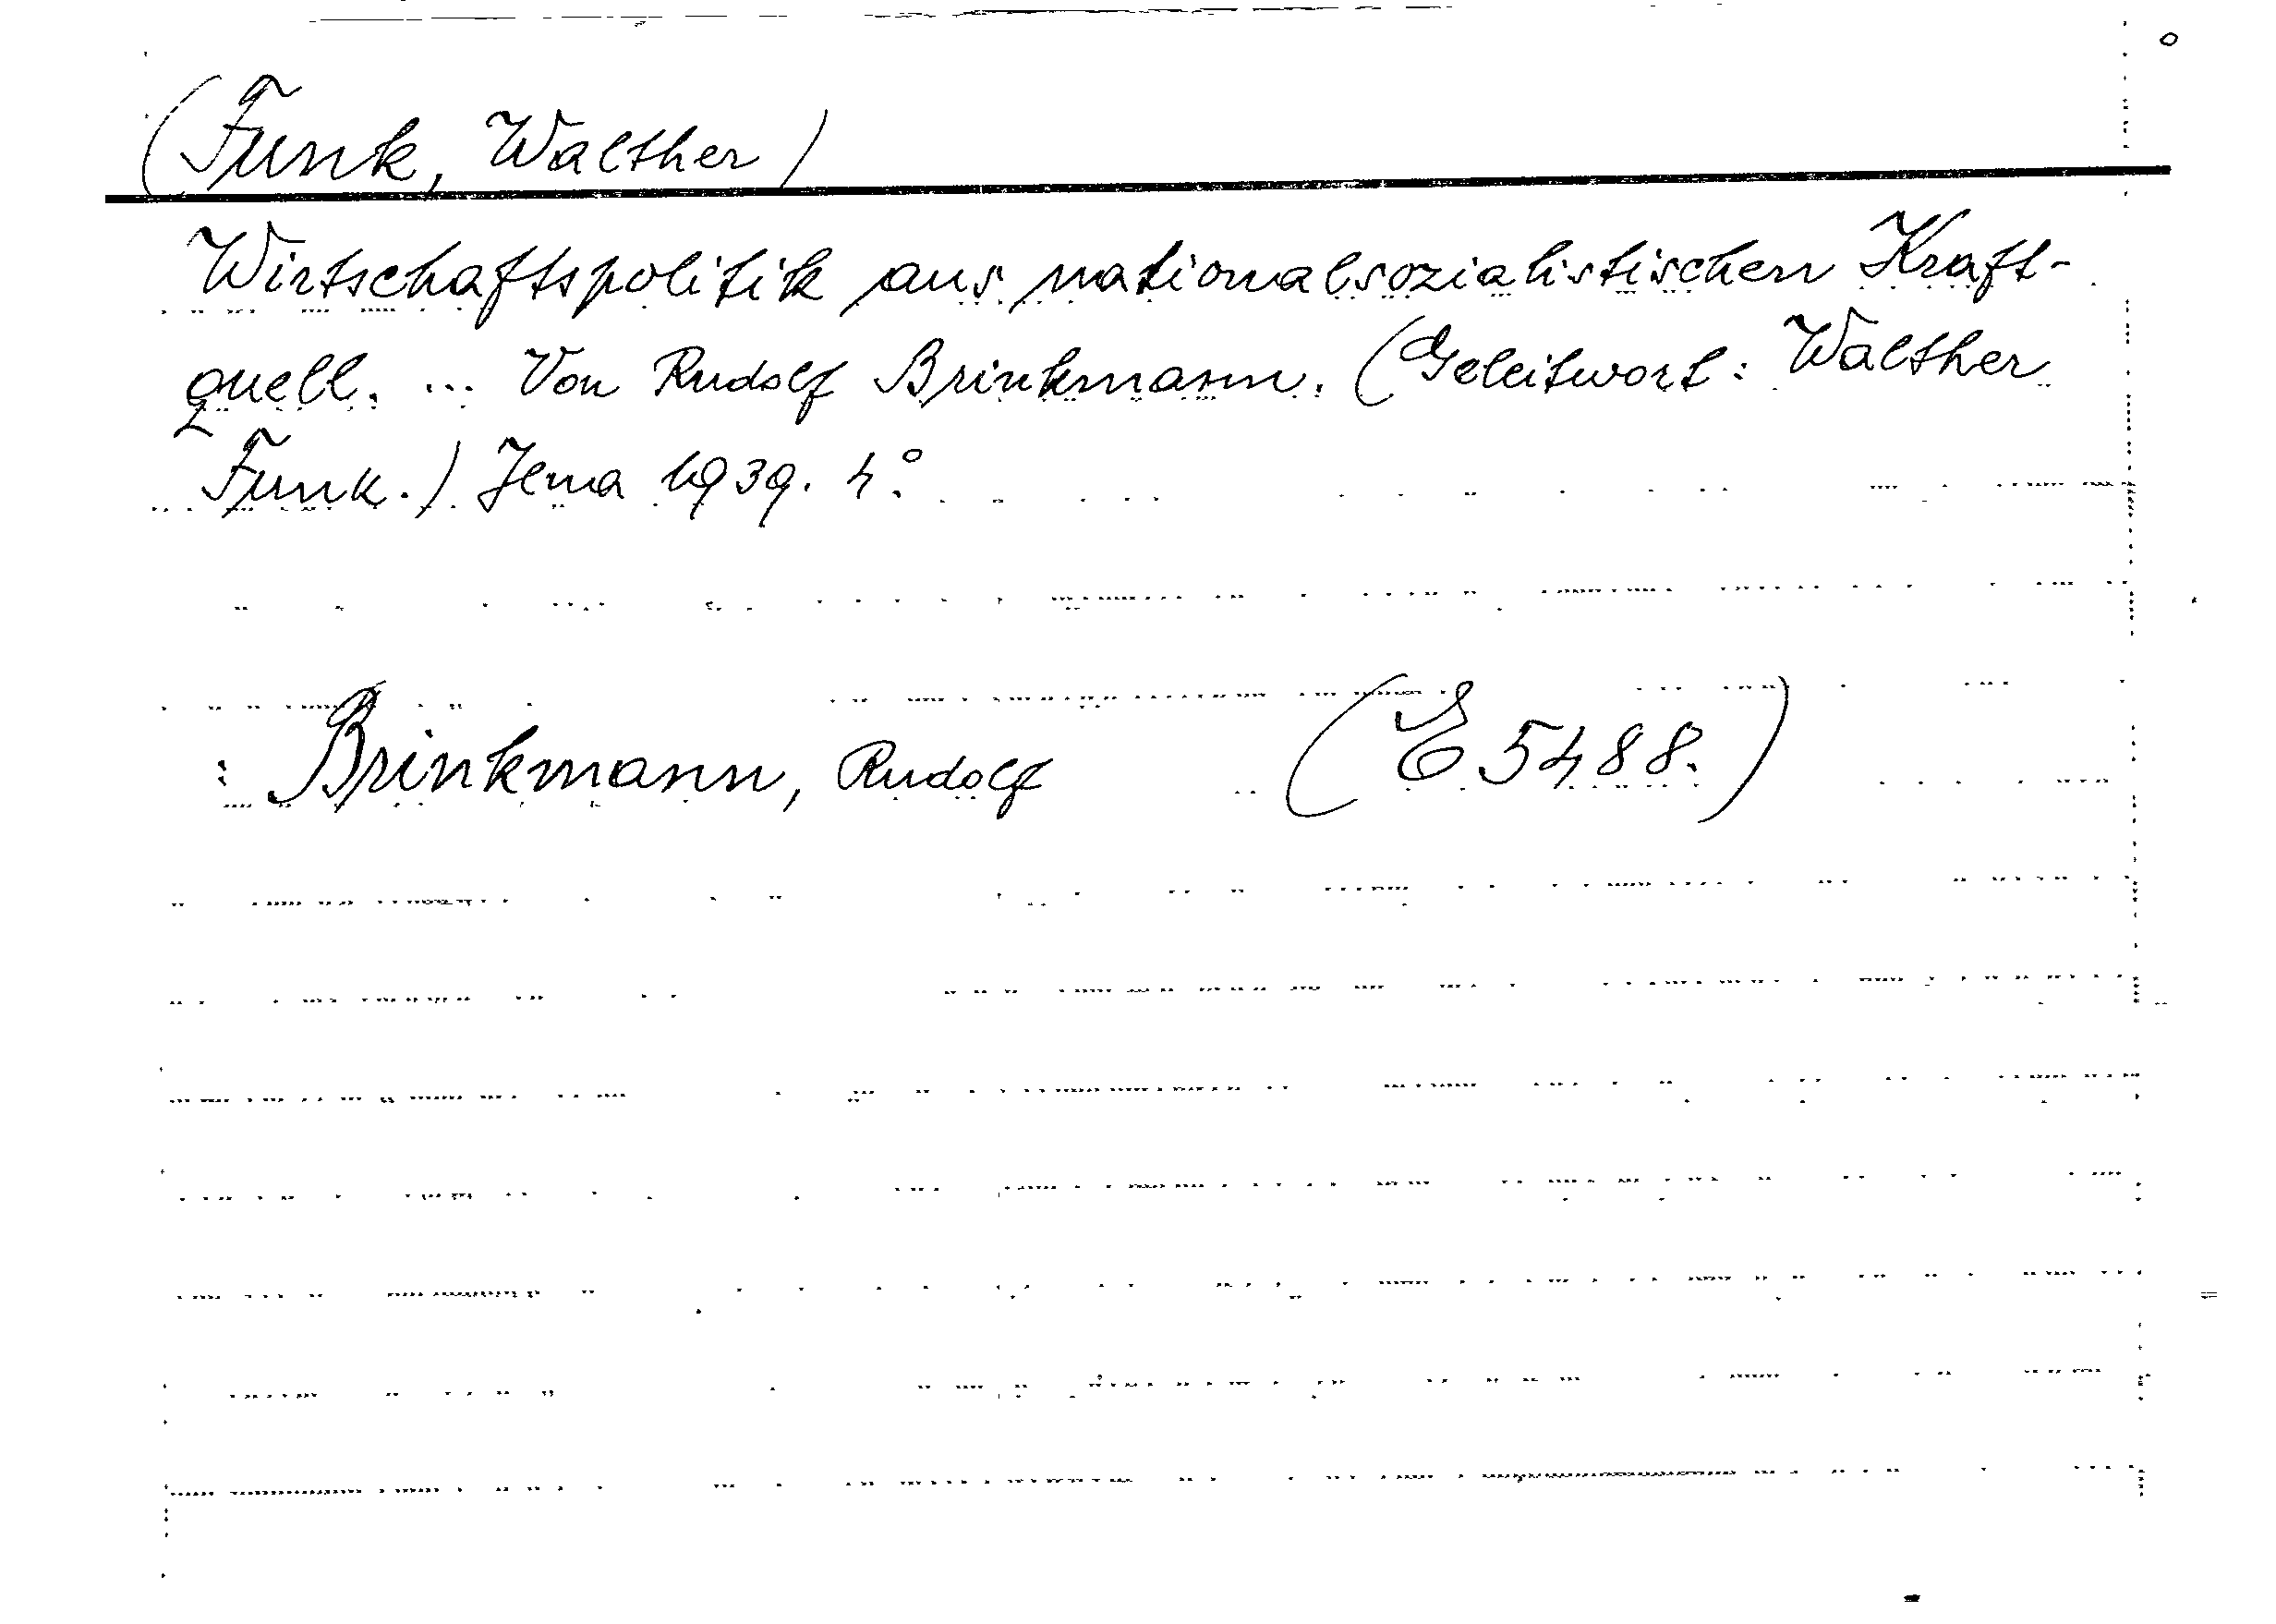 (Funk, Walther)
Wirtschaftspolitik aus nationalsozialistischen Kraft-
quell. ... Von Rudolf Brinkmann. (Geleitwort: Walther
Funk.) Jena 1939. 4°.
: Brinkmann, Rudolf (E 5488.)